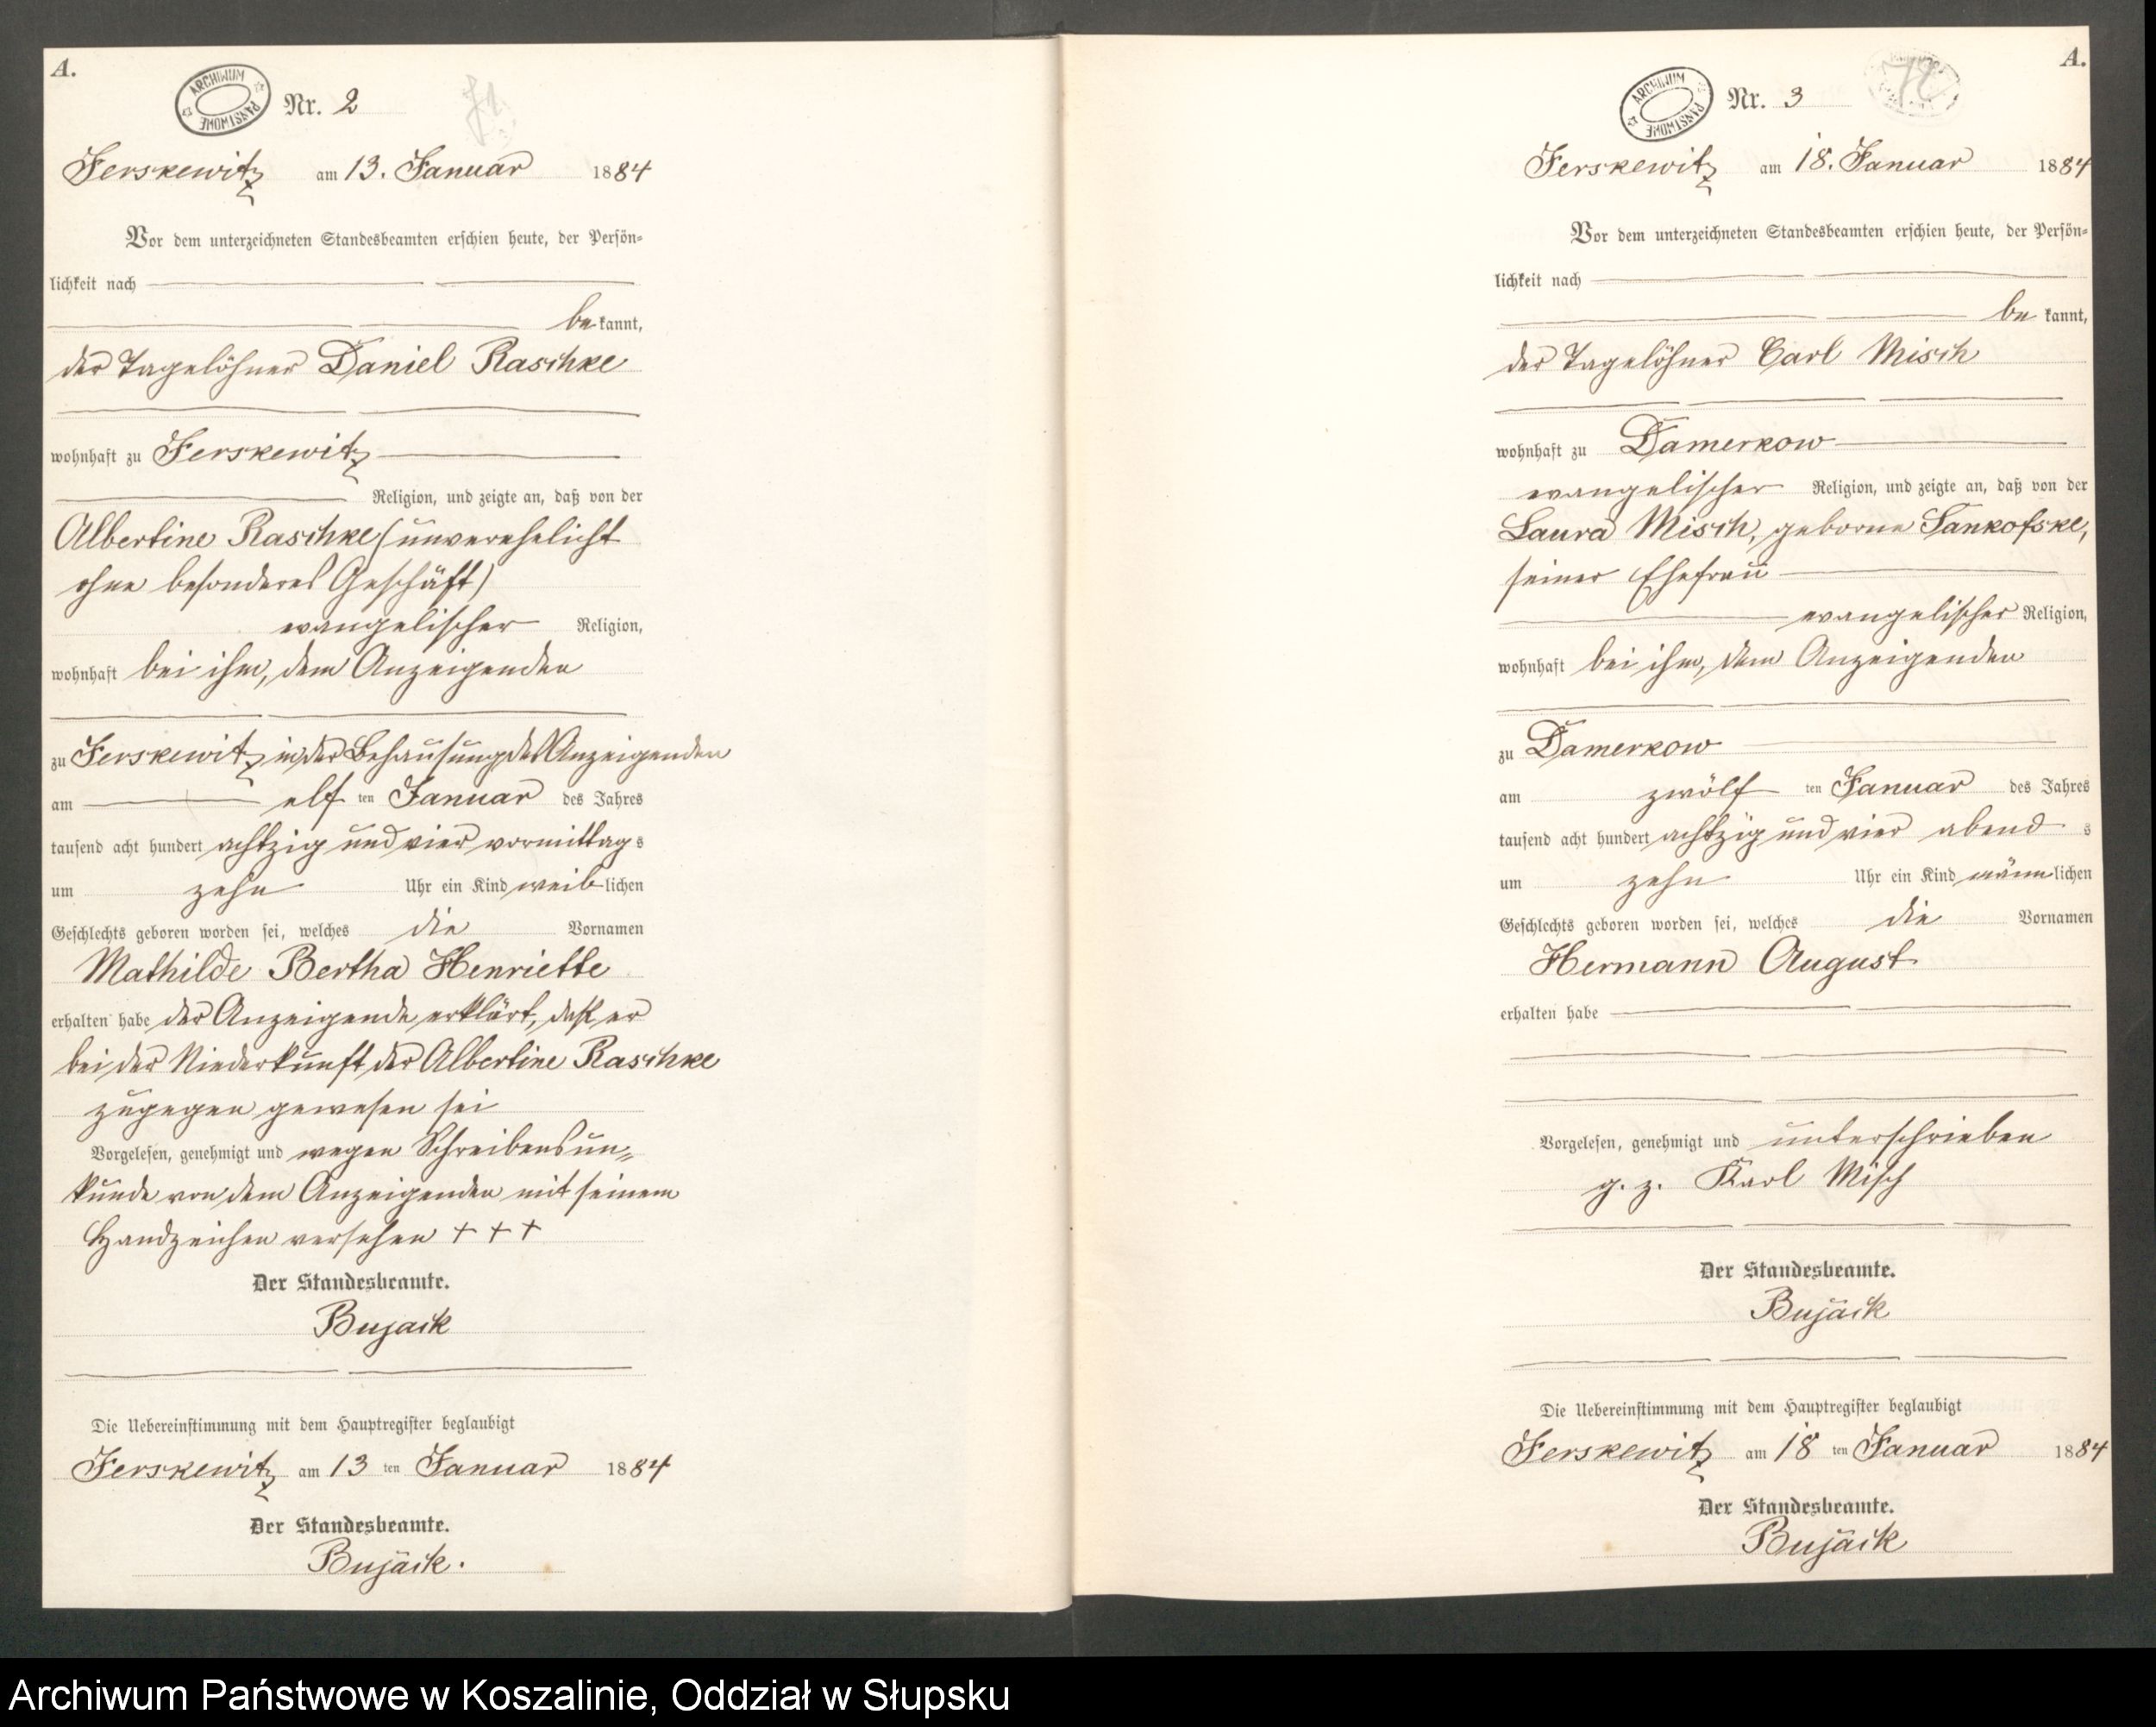 A.
ARCHIWUM PAŃSTWOWE
Nr. 2
71.
Jerskewitz am 13. Januar 1884
Vor dem unterzeichneten Standesbeamten erschien heute, der Persön-
lichkeit nach
bekannt,
der Tagelöhner Daniel Raschke
wohnhaft zu Jerskewitz
Religion, und zeigte an, daß von der
Albertine Raschke (unverehelicht
ohne besonderes Geschäft)
evangelischer Religion,
wohnhaft bei ihm, dem Anzeigenden
zu Jerskewitz in der Behausung des Anzeigenden
am elf ten Januar des Jahres
tausend acht hundert achtzig und vier vormittags
um zehn Uhr ein Kind weiblichen
Geschlechts geboren worden sei, welches die Vornamen
Mathilde Bertha Henriette
erhalten habe der Anzeigende erklärt, daß er
bei der Niederkunft der Albertine Raschke
zugegen gewesen sei
Vorgelesen, genehmigt und wegen Schreibensun-
kunde von dem Anzeigenden mit seinem
Handzeichen versehen + + +
Der Standesbeamte.
Bujack
Die Uebereinstimmung mit dem Hauptregister beglaubigt
Jerskewitz am 13 ten Januar 1884
Der Standesbeamte.
Bujack.
A.
ARCHIWUM PAŃSTWOWE
Nr. 3
Jerskewitz am 18. Januar 1884
Vor dem unterzeichneten Standesbeamten erschien heute, der Persön-
lichkeit nach
bekannt,
der Tagelöhner Carl Misch
wohnhaft zu Damerkow
evangelischer Religion, und zeigte an, daß von der
Laura Misch, geborne Jankofske,
seiner Ehefrau
evangelischer Religion,
wohnhaft bei ihm, dem Anzeigenden
zu Damerkow
am zwölf ten Januar des Jahres
tausend acht hundert achtzig und vier abends
um zehn Uhr ein Kind männlichen
Geschlechts geboren worden sei, welches die Vornamen
Hermann August
erhalten habe
Vorgelesen, genehmigt und unterschrieben
g. z. Karl Misch
Der Standesbeamte.
Bujack
Die Uebereinstimmung mit dem Hauptregister beglaubigt
Jerskewitz am 18 ten Januar 1884
Der Standesbeamte.
Bujack
Archiwum Państwowe w Koszalinie, Oddział w Słupsku